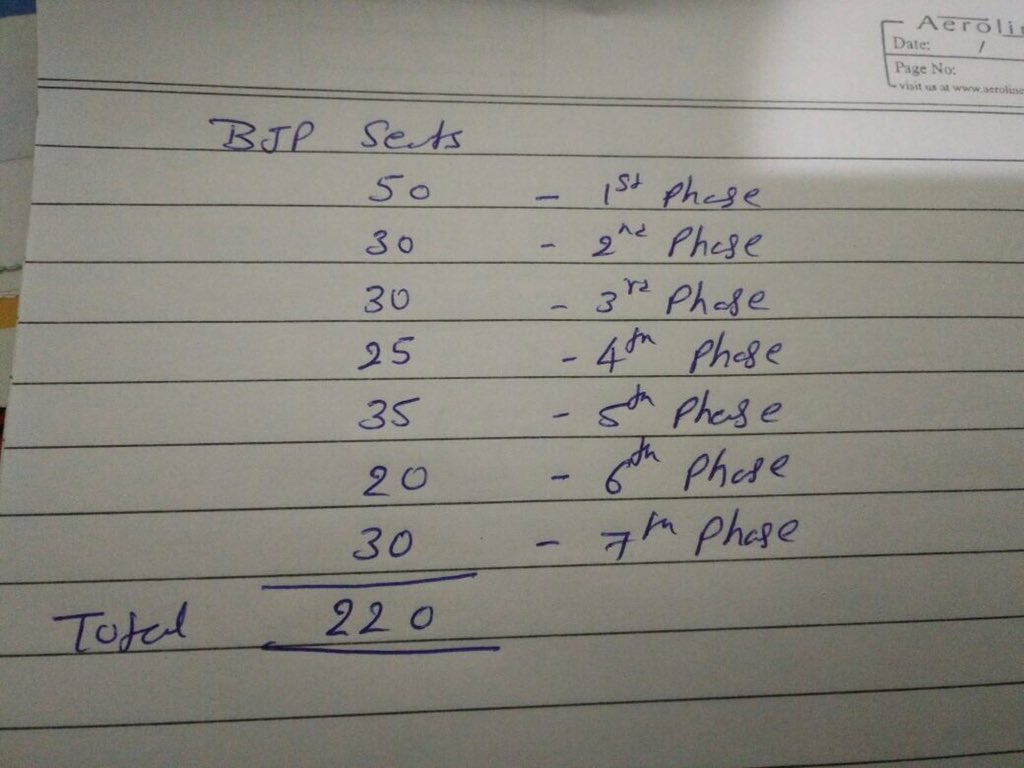 Aeroli
Date: /
Page No:
visit us at www.aeroline
BJP Seats
50 - 1st Phase
30 - 2nd Phase
30 - 3rd Phase
25 - 4th Phase
35 - 5th Phase
20 - 6th Phase
30 - 7th Phase
Total 220